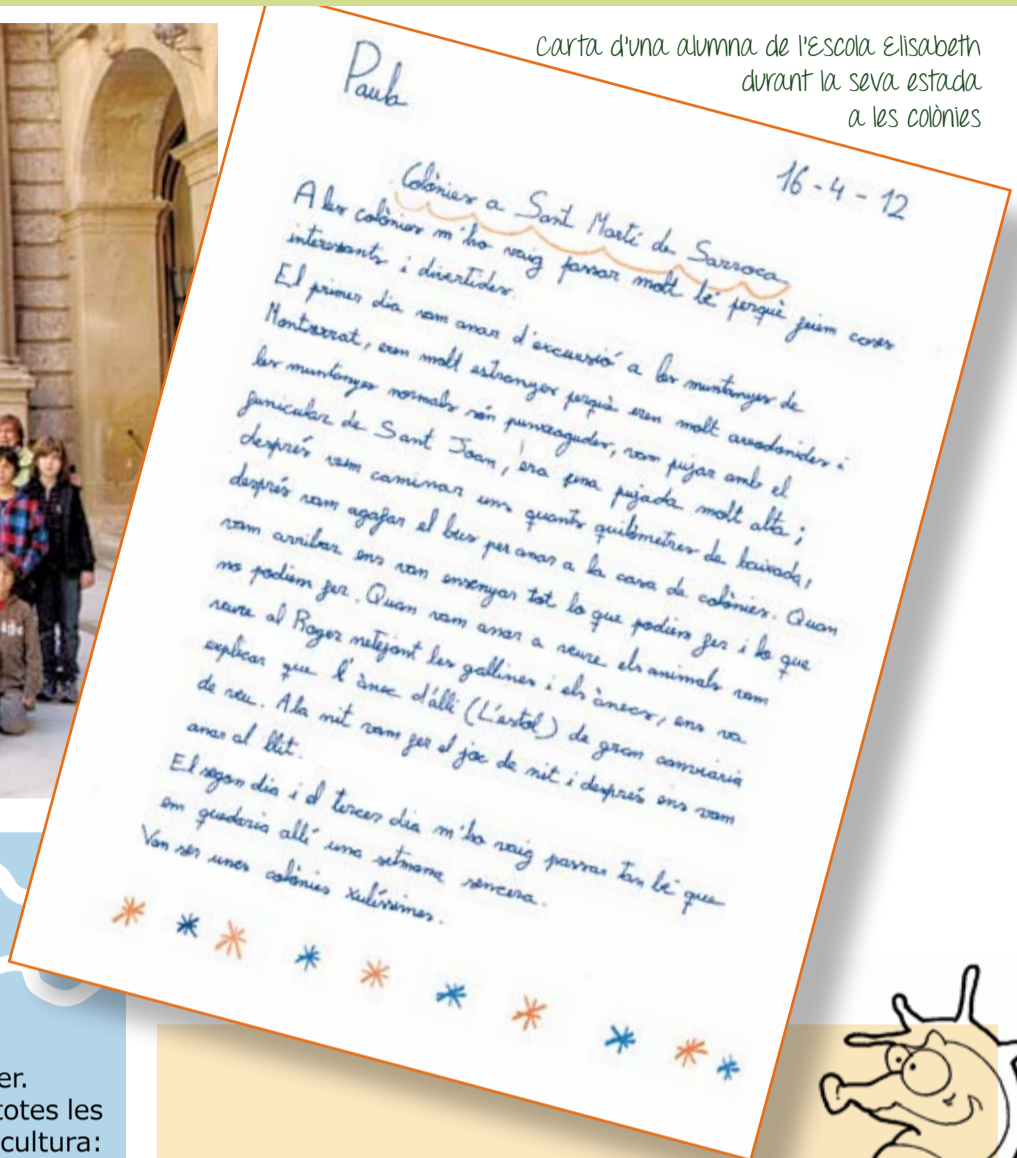 Carta d'una alumna de l'Escola Elisabeth
durant la seva estada
a les colònies
Paula
16-4-12
Colònies a Sant Martí de Sarroca
A les colònies m'ho vaig passar molt bé perquè feiem coses
interessants i divertides.
El primer dia vam anar d'excursió a les muntanyes de
Montserrat, eren molt estranyes perquè eren molt arrodonides i
les muntanyes normals són punxagudes, vam pujar amb el
funicular de Sant Joan, era una pujada molt alta;
després vam caminar uns quants quilòmetres de baixada,
després vam agafar el bus per anar a la casa de colònies. Quan
vam arribar ens van ensenyar tot lo que podiem fer i lo que
no podiem fer. Quan vam anar a veure els animals vam
veure al Roger netejant les gallines i els ànecs, ens va
explicar que l'ànec d'allí (L'estol) de gran canviaria
de veu. A la nit vam fer el joc de nit i després ens vam
anar al llit.
El segon dia i el tercer dia m'ho vaig passar tan bé que
em quedaria allí una setmana sencera.
Van ser unes colònies xulíssimes.
er.
totes les
cultura: